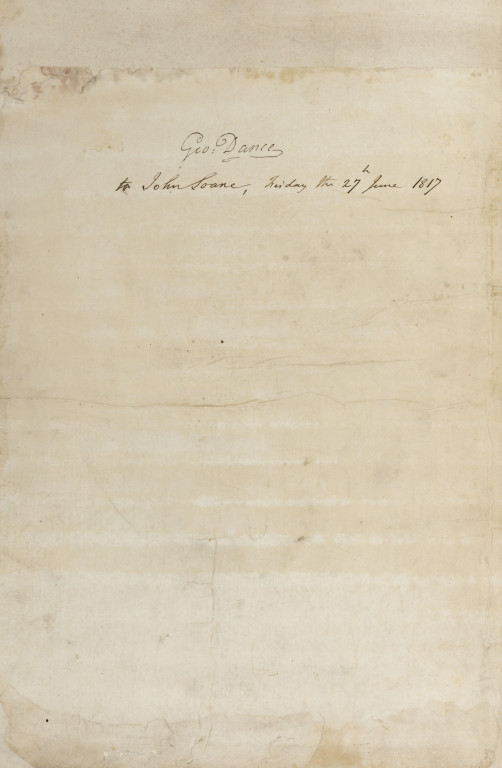 Geo: Dance
to John Soane, Friday the 27th June 1817